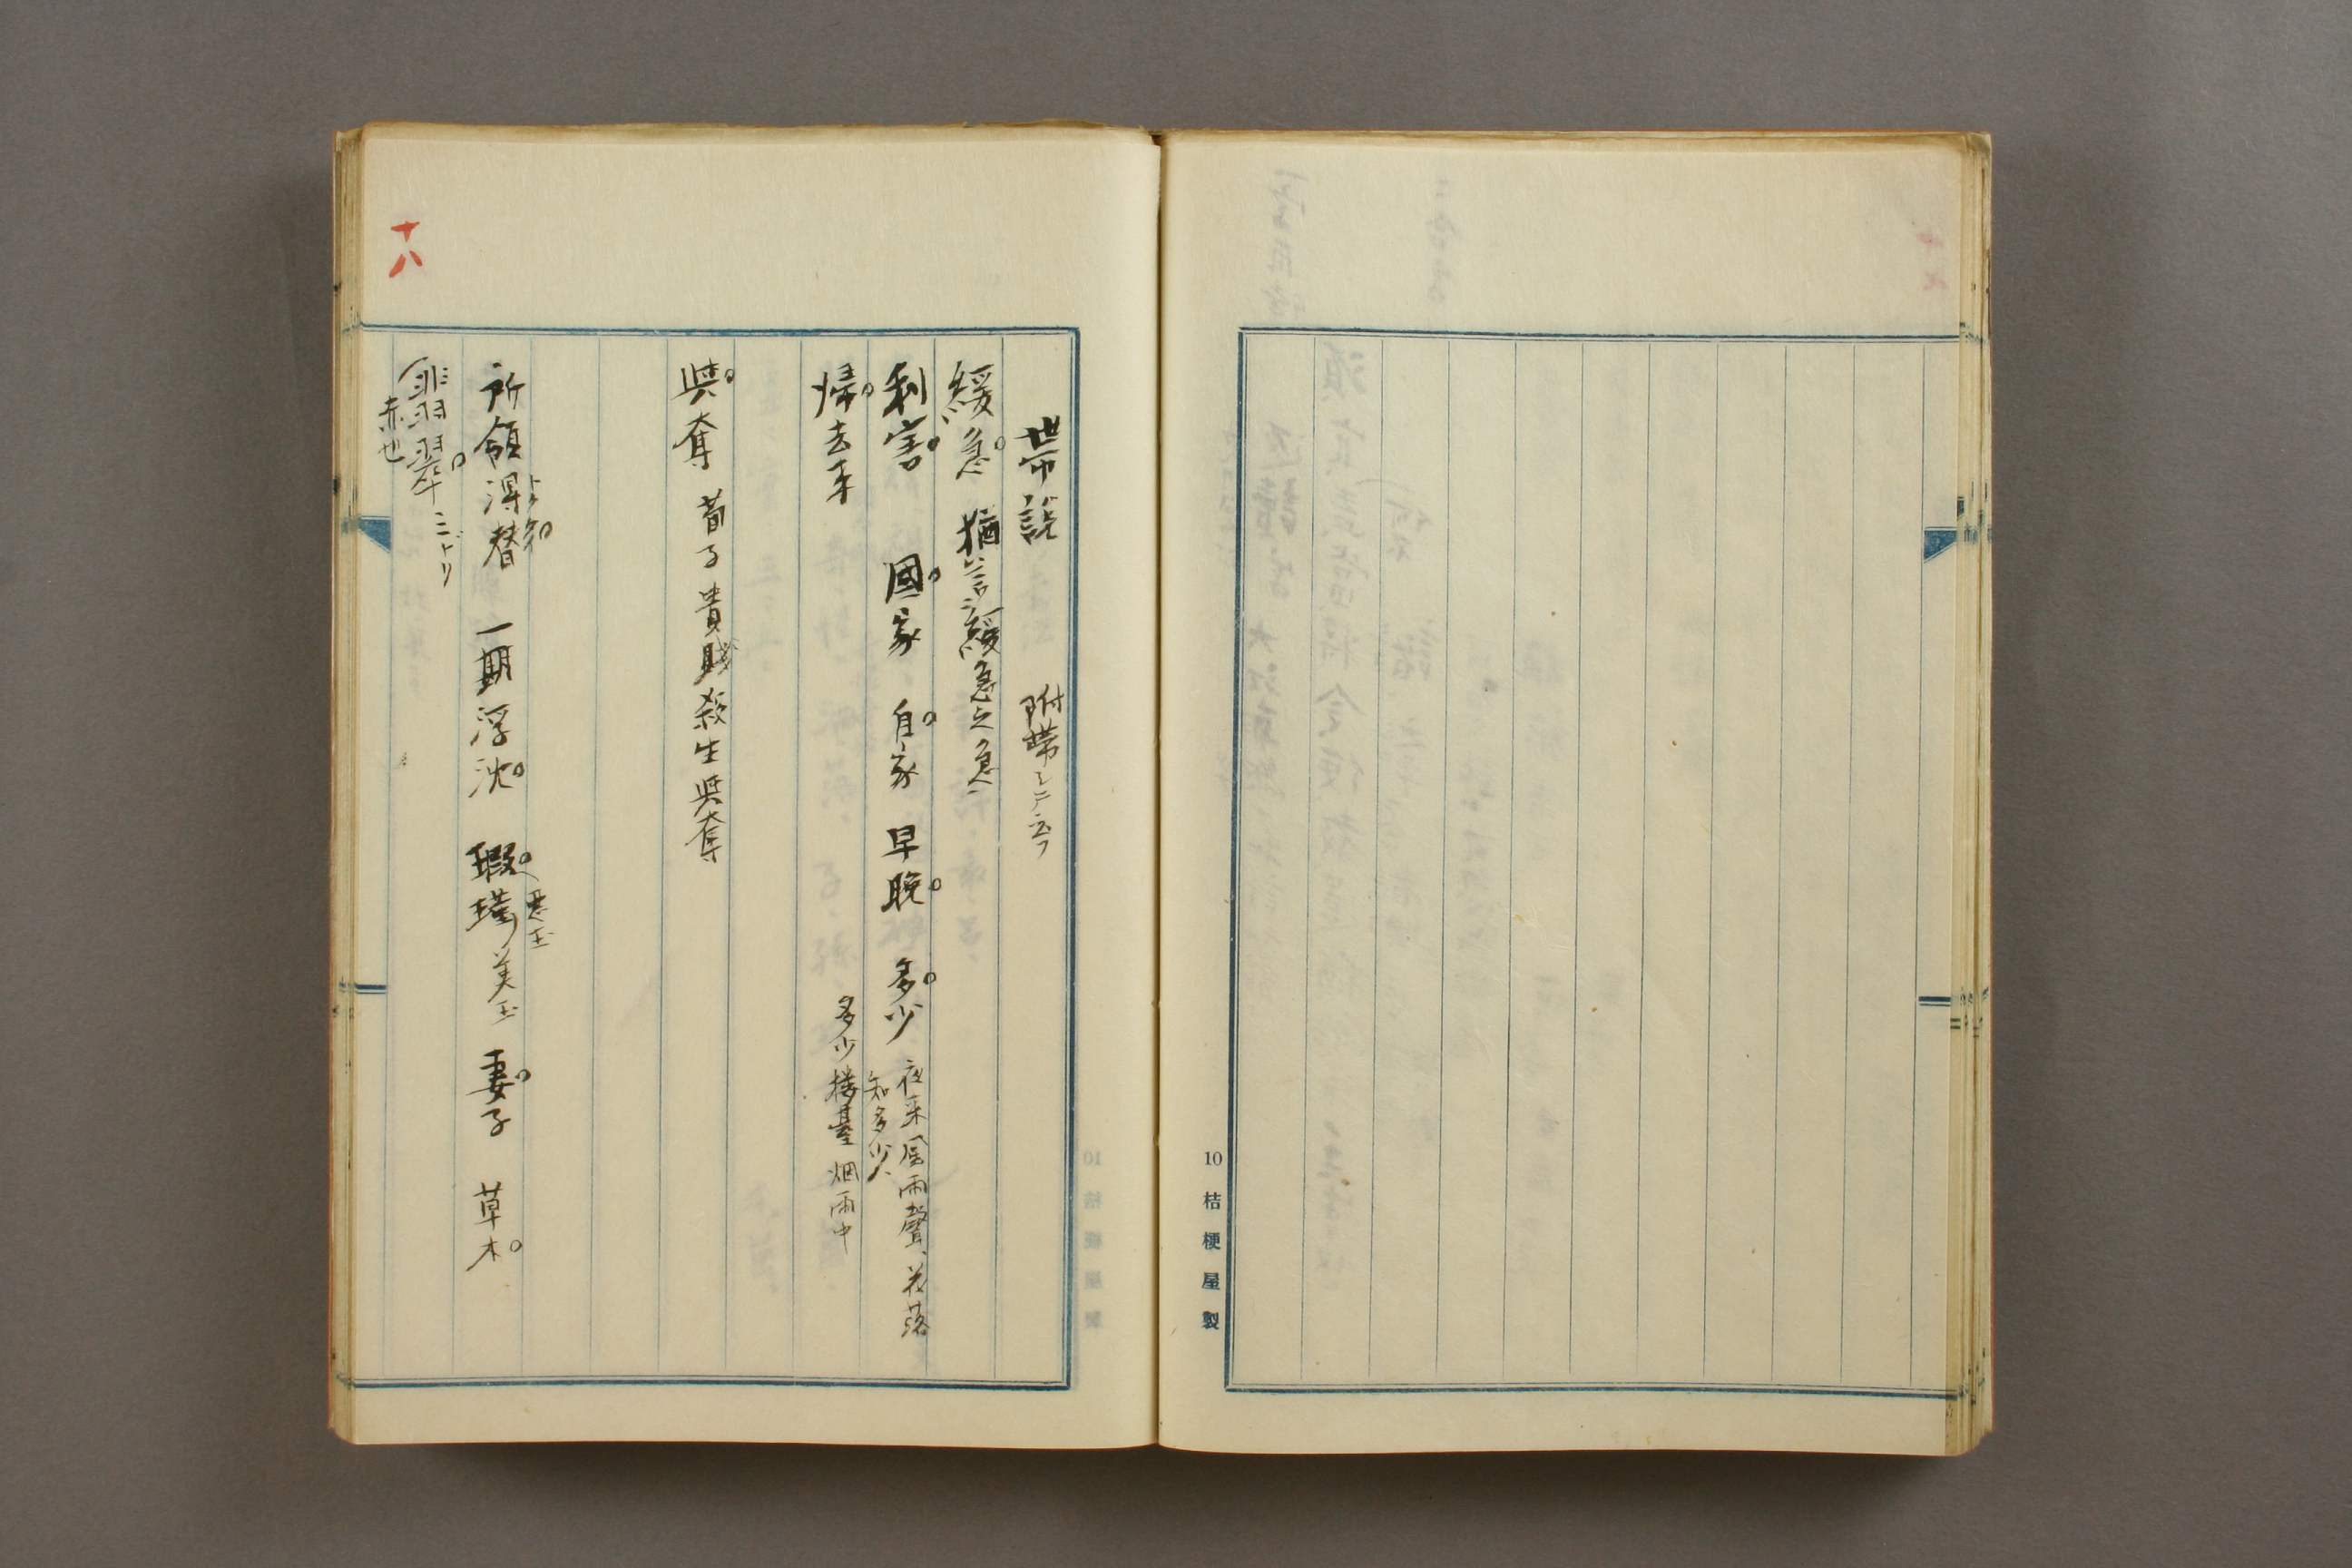 10 桔梗屋製
十八
帯説 附帯シテ云フ
緩急 猶言緩急之急
利害 國家 自家 早晩 多少 夜来風雨聲、花落
知多少、
帰去来 多少楼臺烟雨中
與奪 荀子貴賤殺生與奪
所領得替 一期浮沈 瑕瑾 美玉 妻子 草木
悪玉
翡翠 ミドリ
赤也